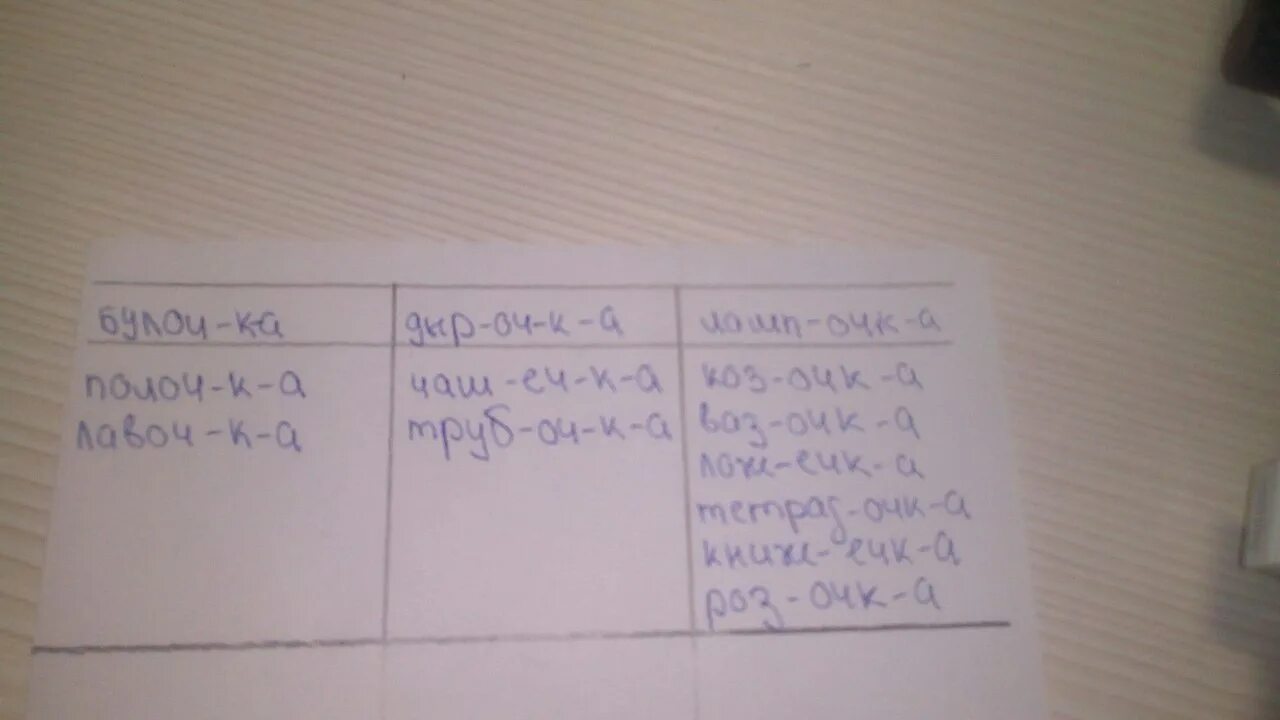 булоч-ка дыр-оч-к-а ламп-очк-а
полоч-к-а чаш-еч-к-а коз-очк-а
лавоч-к-а труб-оч-к-а ваз-очк-а
лож-ечк-а
тетрад-очк-а
книж-ечк-а
роз-очк-а